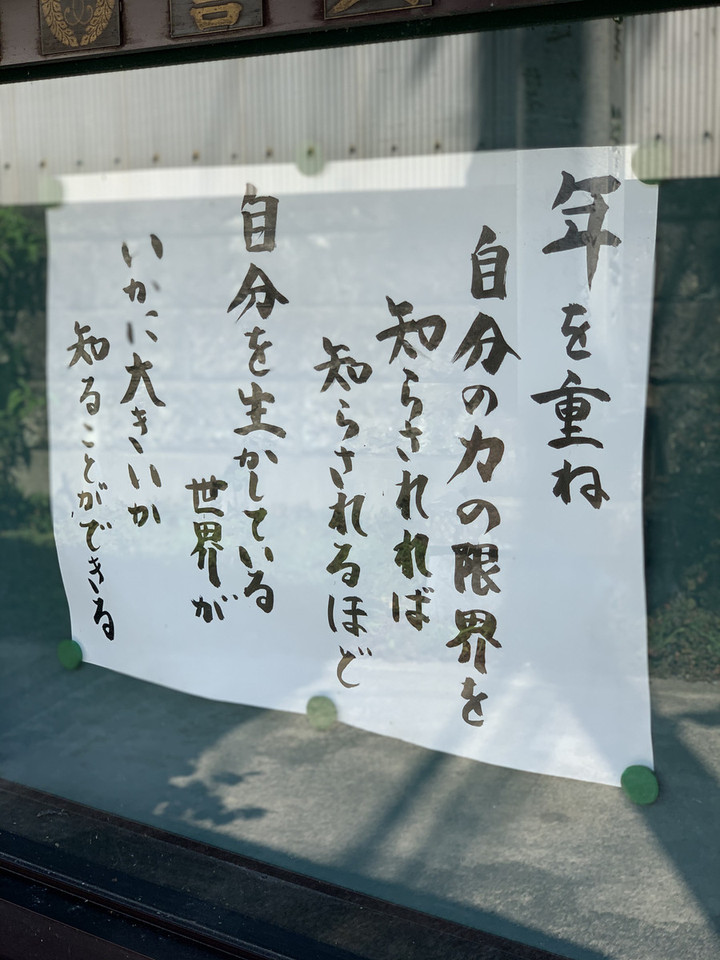 年を重ね
自分の力の限界を
知らされれば
知らされるほど
自分を生かしている
世界が
いかに大きいか
知ることができる